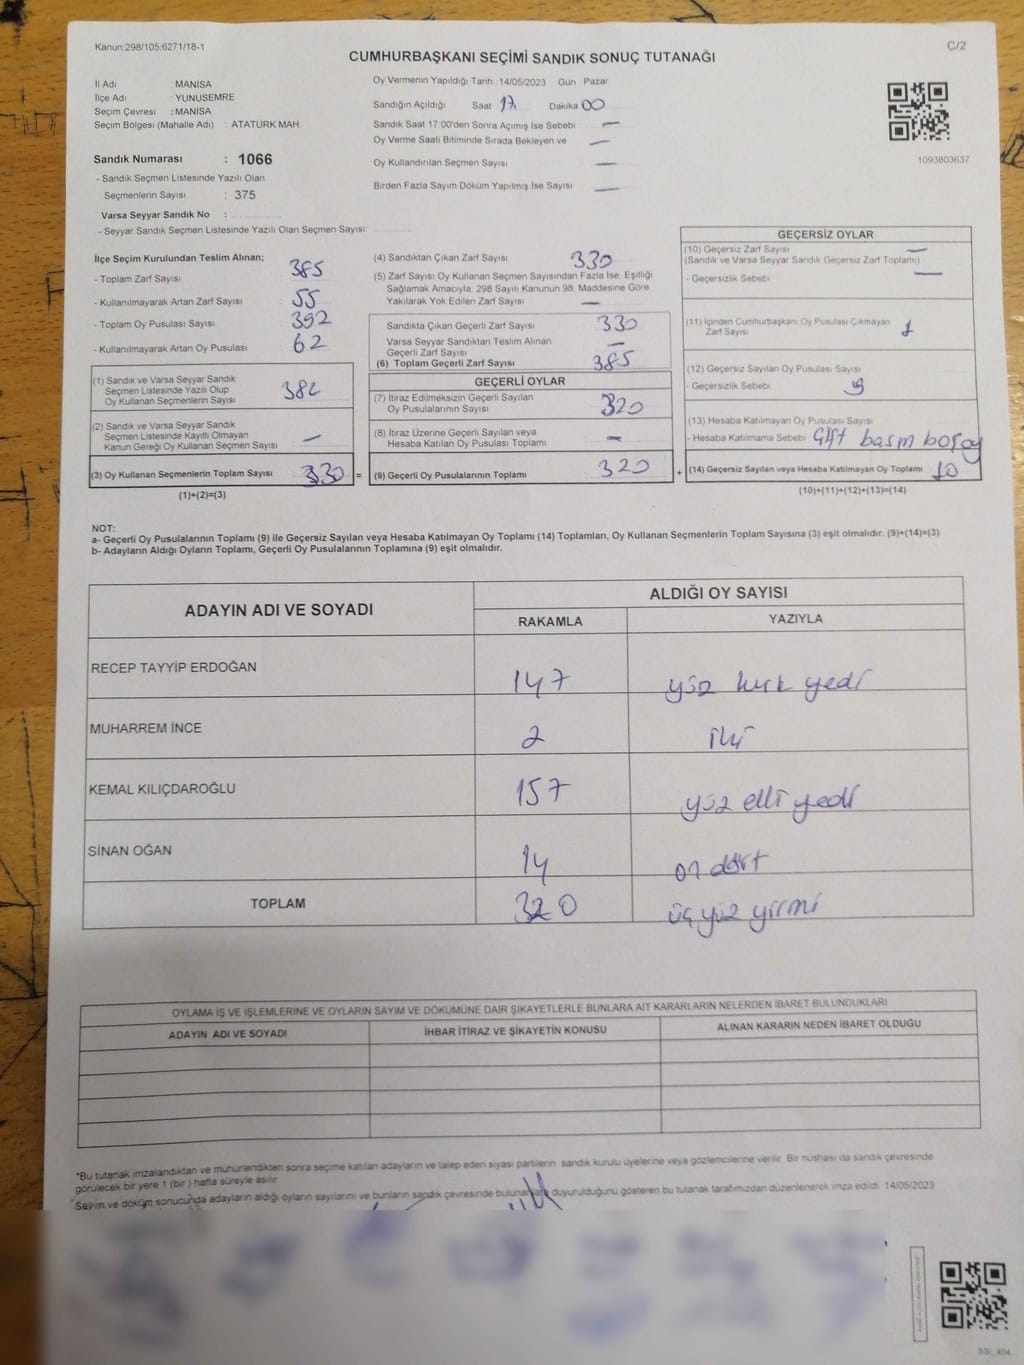 Kanun;298/105;6271/18-1
C/2
CUMHURBAŞKANI SEÇİMİ SANDIK SONUÇ TUTANAĞI
İl Adı : MANİSA
İlçe Adı : YUNUSEMRE
Seçim Çevresi : MANİSA
Seçim Bölgesi (Mahalle Adı) : ATATÜRK MAH.
Sandık Numarası : 1066
- Sandık Seçmen Listesinde Yazılı Olan
Seçmenlerin Sayısı : 375
Varsa Seyyar Sandık No :
- Seyyar Sandık Seçmen Listesinde Yazılı Olan Seçmen Sayısı
Oy Vermenin Yapıldığı Tarih 14/05/2023 Gün Pazar
Sandığın Açıldığı Saat 17 Dakika 00
Sandık Saat 17:00'den Sonra Açımış İse Sebebi —
Oy Verme Saati Bitiminde Sırada Bekleyen ve —
Oy Kullandırılan Seçmen Sayısı —
Birden Fazla Sayım Döküm Yapılmış İse Sayısı —
1093803637
İlçe Seçim Kurulundan Teslim Alınan;
- Toplam Zarf Sayısı 385
- Kullanılmayarak Artan Zarf Sayısı 55
- Toplam Oy Pusulası Sayısı 392
- Kullanılmayarak Artan Oy Pusulası 62
(1) Sandık ve Varsa Seyyar Sandık
Seçmen Listesinde Yazılı Olup
Oy Kullanan Seçmenlerin Sayısı
(2) Sandık ve Varsa Seyyar Sandık
Seçmen Listesinde Kayıtlı Olmayan
Kanun Gereği Oy Kullanan Seçmen Sayısı —
(3) Oy Kullanan Seçmenlerin Toplam Sayısı 330 =
(1)+(2)=(3)
(4) Sandıktan Çıkan Zarf Sayısı 330
(5) Zarf Sayısı Oy Kullanan Seçmen Sayısından Fazla İse, Eşitliği
Sağlamak Amacıyla; 298 Sayılı Kanunun 98. Maddesine Göre
Yakılarak Yok Edilen Zarf Sayısı —
Sandıkta Çıkan Geçerli Zarf Sayısı 330
Varsa Seyyar Sandıktan Teslim Alınan
Geçerli Zarf Sayısı —
(6) Toplam Geçerli Zarf Sayısı 385
GEÇERLİ OYLAR
(7) İtiraz Edilmeksizin Geçerli Sayılan
Oy Pusulalarının Sayısı 320
(8) İtiraz Üzerine Geçerli Sayılan veya
Hesaba Katılan Oy Pusulası Toplamı —
(9) Geçerli Oy Pusulalarının Toplamı 320 +
GEÇERSİZ OYLAR
(10) Geçersiz Zarf Sayısı —
(Sandık ve Varsa Seyyar Sandık Geçersiz Zarf Toplamı)
- Geçersizlik Sebebi —
(11) İçinden Cumhurbaşkanı Oy Pusulası Çıkmayan
Zarf Sayısı 1
(12) Geçersiz Sayılan Oy Pusulası Sayısı
- Geçersizlik Sebebi 9
(13) Hesaba Katılmayan Oy Pusulası Sayısı
- Hesaba Katılmama Sebebi Çift basım boş oy
(14) Geçersiz Sayılan veya Hesaba Katılmayan Oy Toplamı 10
(10)+(11)+(12)+(13)=(14)
NOT:
a- Geçerli Oy Pusulalarının Toplamı (9) ile Geçersiz Sayılan veya Hesaba Katılmayan Oy Toplamı (14) Toplamları, Oy Kullanan Seçmenlerin Toplam Sayısına (3) eşit olmalıdır. (9)+(14)=(3)
b- Adayların Aldığı Oyların Toplamı, Geçerli Oy Pusulalarının Toplamına (9) eşit olmalıdır.
ADAYIN ADI VE SOYADI
ALDIĞI OY SAYISI
RAKAMLA YAZIYLA
RECEP TAYYİP ERDOĞAN 147 yüz kırk yedi
MUHARREM İNCE 2 iki
KEMAL KILIÇDAROĞLU 157 yüz elli yedi
SİNAN OĞAN 14 on dört
TOPLAM 320 üç yüz yirmi
OYLAMA İŞ VE İŞLEMLERİNE VE OYLARIN SAYIM VE DÖKÜMÜNE DAİR ŞİKAYETLERLE BUNLARA AİT KARARLARIN NELERDEN İBARET BULUNDUKLARI
ADAYIN ADI VE SOYADI İHBAR İTİRAZ VE ŞİKAYETİN KONUSU ALINAN KARARIN NEDEN İBARET OLDUĞU
*Bu tutanak imzalandıktan ve mühürlendikten sonra seçime katılan adayların ve talep eden siyasi partilerin sandık kurulu üyelerine veya gözlemcilerine verilir. Bir nüshası da sandık çevresinde
görülecek bir yere 1 (bir ) hafta süreyle asılır.
*Sayım ve döküm sonucunda adayların aldığı oyların sayılarını ve bunların sandık çevresinde bulunanlara duyurulduğunu gösteren bu tutanak tarafımızdan düzenlenerek imza edildi. 14/05/2023